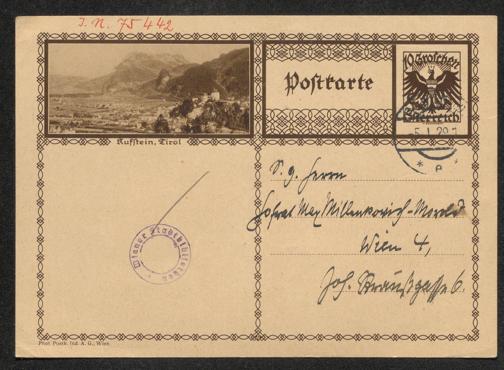 I. N. 75442
Kufstein, Tirol
Postkarte
10 Groschen
Österreich
5.I.29
* e *
Wiener Stadtbibliothek
S. g. Herrn
Hofrat Max Millenkovich-Morold
Wien 4,
Joh. Straußgasse 6.
Phot. Postk. Ind. A. G., Wien